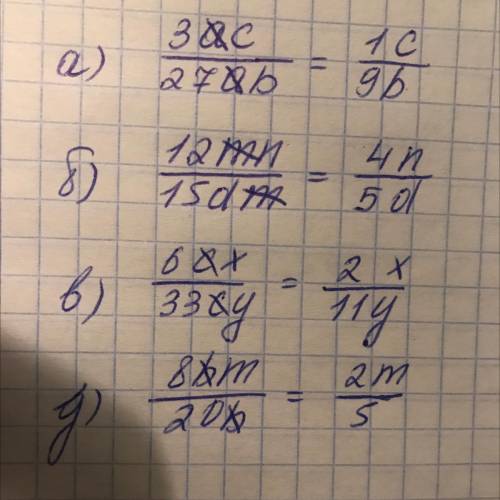 а) 3ac/27ab = 1c/9b
б) 12mn/15dm = 4n/5d
в) 6ax/33ay = 2x/11y
д) 8bm/20b = 2m/5